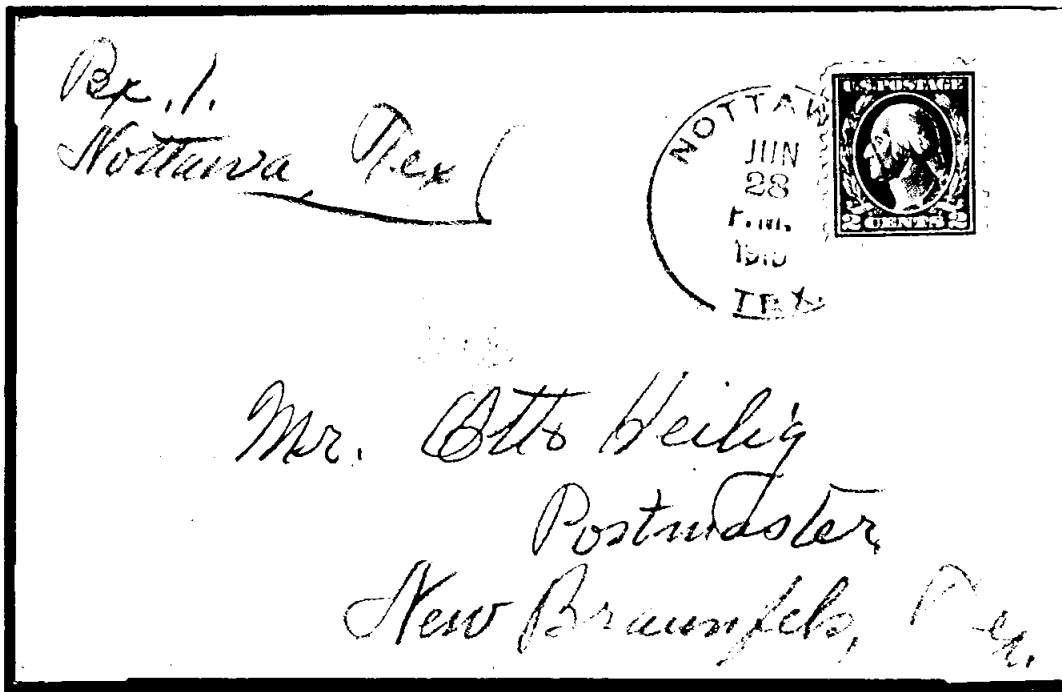 Bx. 1.
Nottawa, Tex
NOTTAW
JUN
28
P.M.
TEX.
U.S. POSTAGE
2 CENTS 2
Mr. Otto Heilig
Postmaster,
New Braunfels, Tex.